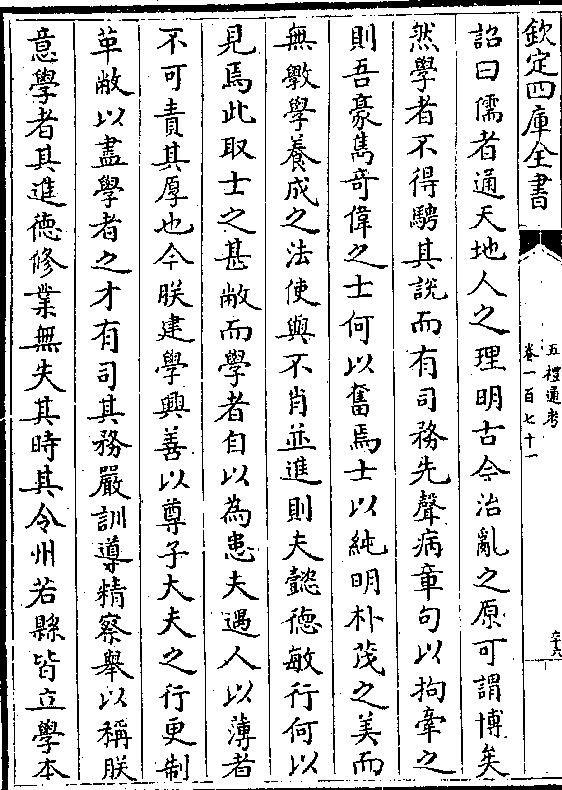 欽定四庫全書
五禮通考
卷一百七十一
詔曰儒者通天地人之理明古今治亂之原可謂博矣
然學者不得騁其說而有司務先聲病章句以拘牽之
則吾豪雋奇偉之士何以奮焉士以純明朴茂之美而
無斆學養成之法使與不肖並進則夫懿德敏行何以
見焉此取士之甚敝而學者自以為患夫遇人以薄者
不可責其厚也今朕建學興善以尊子大夫之行更制
革敝以盡學者之才有司其務嚴訓導精察舉以稱朕
意學者其進德修業無失其時其令州若縣皆立學本